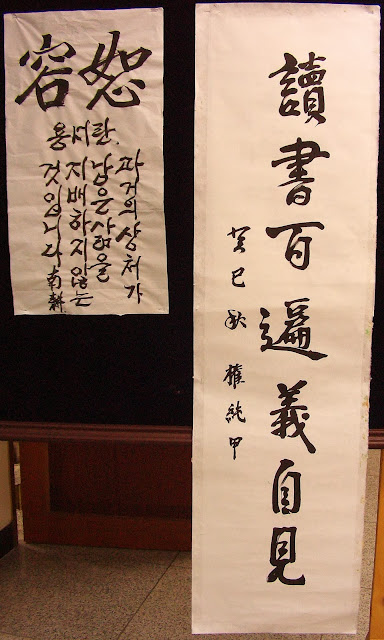 容恕
용서란.
과거의 상처가
남은 삶을
지배하지 않는
것입니다 南
讀書百遍義自見
癸巳秋 權純甲